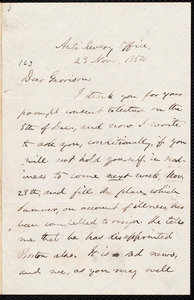 Anti-Slavery Office,
23 Nov., 1854.
163
Dear Garrison,
I thank you for your
prompt consent to lecture on the
5th of Dec., and now I write
to ask you, conditionally, if you
will not hold yourself in read-
iness to come next week, Nov
28th, and fill the place, which
Sumner, on account of illness, has
been compelled to resign. He tells
me that he has disappointed
Boston also. It is sad news,
and we, as you may well